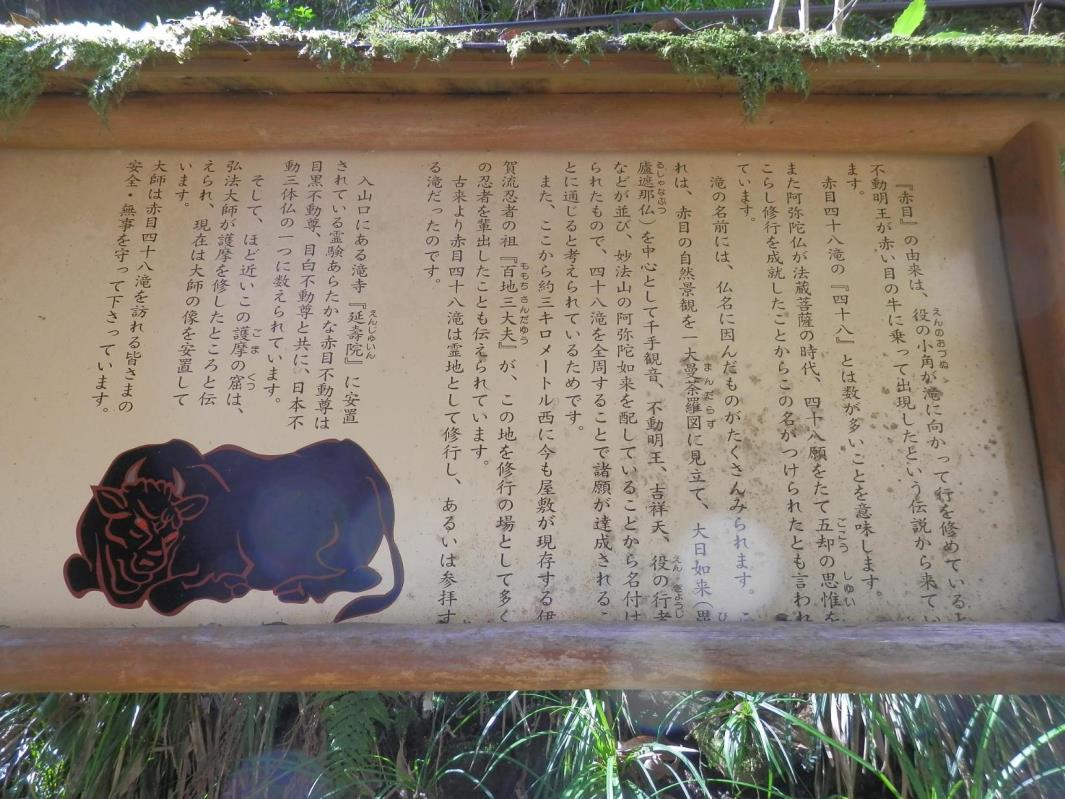 『赤目』の由来は、役の小角が滝に向かって行を修めている
不動明王が赤い目の牛に乗って出現したという伝説から来てい
ます。
赤目四十八滝の『四十八』とは数が多いことを意味します。
また阿弥陀仏が法蔵菩薩の時代、四十八願をたて五却の思惟を
こらし修行を成就したことからこの名がつけられたとも言われ
ています。
滝の名前には、仏名に因んだものがたくさんみられます。こ
れは、赤目の自然景観を一大曼荼羅図に見立て、大日如来(毘
盧遮那仏)を中心として千手観音、不動明王、吉祥天、役の行者
などが並び、妙法山の阿弥陀如来を配していることから名付け
られたもので、四十八滝を全周することで諸願が達成されるこ
とに通じると考えられているためです。
また、ここから約三キロメートル西に今も屋敷が現存する伊
賀流忍者の祖『百地三大夫』が、この地を修行の場として多く
の忍者を輩出したことも伝えられています。
古来より赤目四十八滝は霊地として修行し、あるいは参拝す
る滝だったのです。
入山口にある滝寺『延壽院』に安置
されている霊験あらたかな赤目不動尊は
目黒不動尊、目白不動尊と共に、日本不
動三体仏の一つに数えられています。
そして、ほど近いこの護摩の窟は、
弘法大師が護摩を修したところと伝
えられ、現在は大師の像を安置して
います。
大師は赤目四十八滝を訪れる皆さまの
安全・無事を守って下さっています。